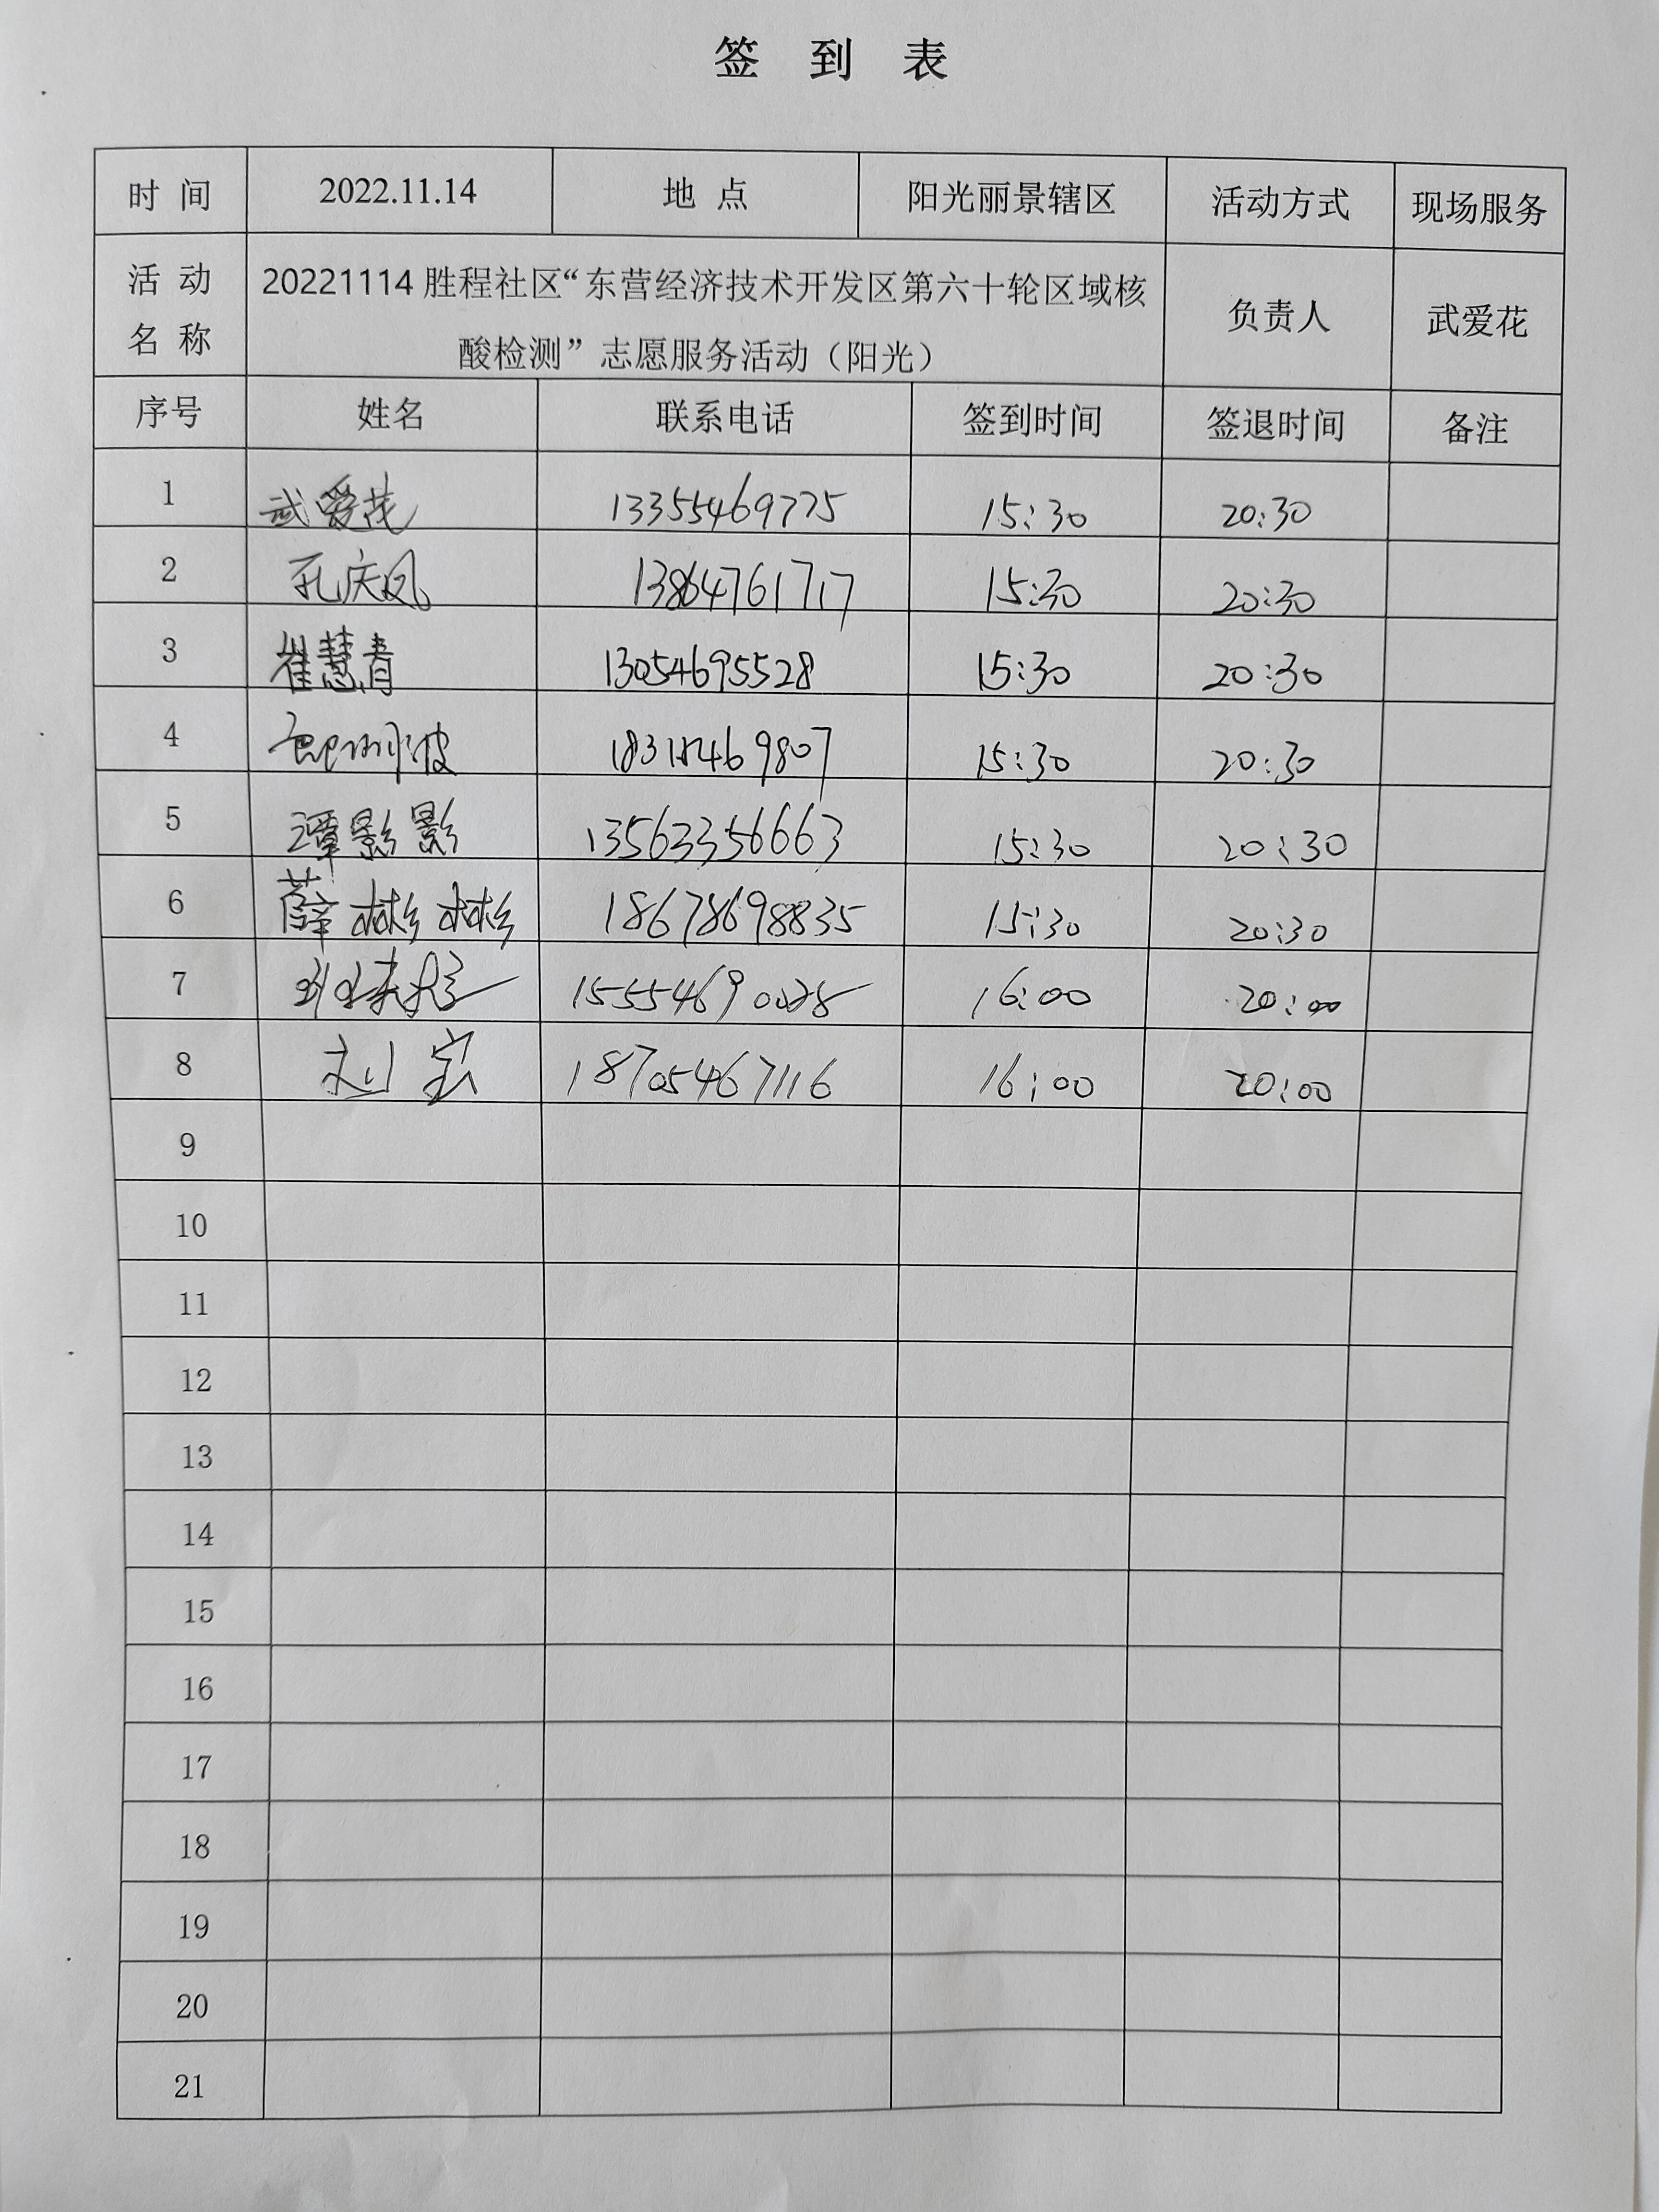 签 到 表
时 间 2022.11.14 地 点 阳光丽景辖区 活动方式 现场服务
活 动 名 称 20221114胜程社区“东营经济技术开发区第六十轮区域核 负责人 武爱花
酸检测”志愿服务活动（阳光）
序号 姓名 联系电话 签到时间 签退时间 备注
1 武爱花 13355469775 15:30 20:30
2 孔庆凤 13864761717 15:30 20:30
3 崔慧青 13054695528 15:30 20:30
4 15:30 20:30
5 谭影影 13563356663 15:30 20:30
6 薛彬彬 18678698835 15:30 20:30
7 16:00 20:00
8 刘宏 18705467116 16:00 20:00
9
10
11
12
13
14
15
16
17
18
19
20
21